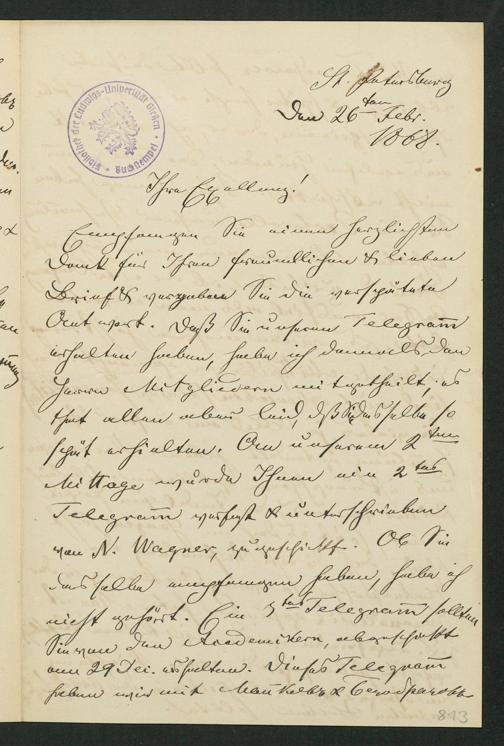 St. Petersburg
Den 26ten Febr.
1868.
Bibliothek der Ludwigs-Universität Giessen
Buchstempel
Ihre Exellenz!
Empfangen Sie einen herzlichsten
Dank für Ihren freundlichen & lieben
Brief & vergeben Sie die verspätete
Antwort. Daß Sie unseren Telegram̄
erhalten haben, habe ich damals den
Herrn Mitgliedern mitgetheilt, es
that allen aber leid, dß Sie dasselbe so
spät erhielten. An unserem 2ten
Mittage wurde Ihnen ein 2tes
Telegram̄ verfast & unterschrieben
von N. Wagner, zugeschikt. Ob Sie
dasselbe empfangen haben, habe ich
nicht gehört. Ein 3tes Telegram̄ sollten
Sie von den Academikern, abgeschikt
am 29 Dec. erhalten. Dieses Telegram̄
haben wir mit
813